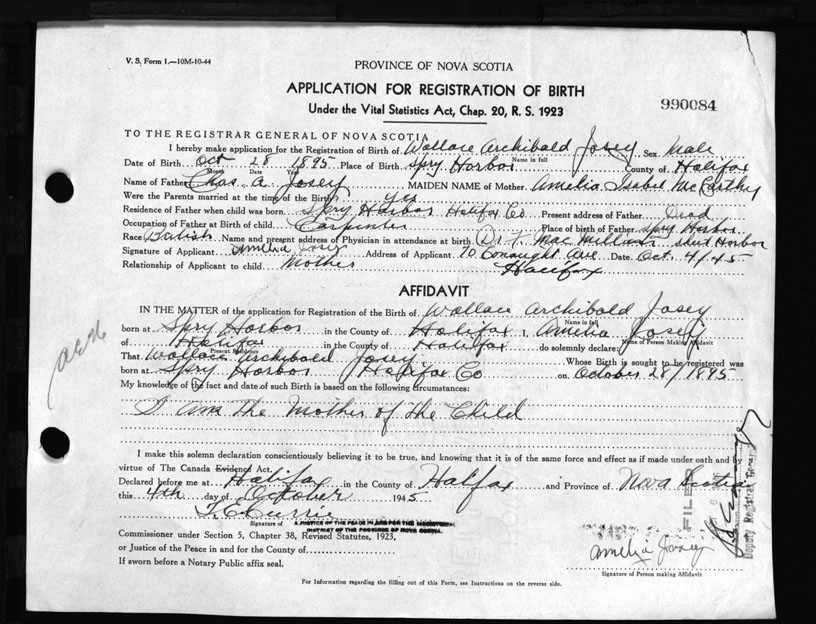 V. S. Form 1.—10M-10-44
PROVINCE OF NOVA SCOTIA
APPLICATION FOR REGISTRATION OF BIRTH
Under the Vital Statistics Act, Chap. 20, R. S. 1923
990084
TO THE REGISTRAR GENERAL OF NOVA SCOTIA
I hereby make application for the Registration of Birth of Wallace Archibald Josey Sex Male
Name in full
Date of Birth Oct 28 1895 Place of Birth Spry Harbor County of Halifax
Month Date Year
Name of Father Chas. A. Josey MAIDEN NAME of Mother Amelia Isabel McCarthy
Were the Parents married at the time of the Birth yes
Residence of Father when child was born Spry Harbor Halifax Co Present address of Father Dead
Occupation of Father at Birth of child Carpenter Place of birth of Father Spry Harbor
Race British Name and present address of Physician in attendance at birth Dr. F. MacMillian Sheet Harbor
Signature of Applicant Amelia Josey Address of Applicant 70 Connaught Ave Date Oct 4/45
Relationship of Applicant to child Mother Halifax
AFFIDAVIT
IN THE MATTER of the application for Registration of the Birth of Wallace Archibald Josey
Name in full
born at Spry Harbor in the County of Halifax I, Amelia Josey
Name of Person Making Affidavit
of Halifax in the County of Halifax do solemnly declare
Present Residence
That Wallace Archibald Josey Whose Birth is sought to be registered was
born at Spry Harbor Halifax Co on October 28/1895
My knowledge of the fact and date of such Birth is based on the following circumstances:
I am The Mother of the Child
I make this solemn declaration conscientiously believing it to be true, and knowing that it is of the same force and effect as if made under oath and by
virtue of The Canada Evidence Act.
Declared before me at Halifax in the County of Halifax and Province of Nova Scotia
this 4th day of October 1945
T. C. Currie
Signature of A JUSTICE OF THE PEACE IN AND FOR THE MAGISTERIAL
DISTRICT OF THE PROVINCE OF NOVA SCOTIA.
Commissioner under Section 5, Chapter 38, Revised Statutes, 1923,
or Justice of the Peace in and for the County of
If sworn before a Notary Public affix seal.
Amelia Josey
Signature of Person making Affidavit
FILED
Deputy Registrar General
For Information regarding the filling out of this Form, see Instructions on the reverse side.